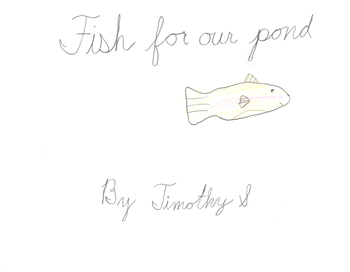 Fish for our pond
By Timothy S